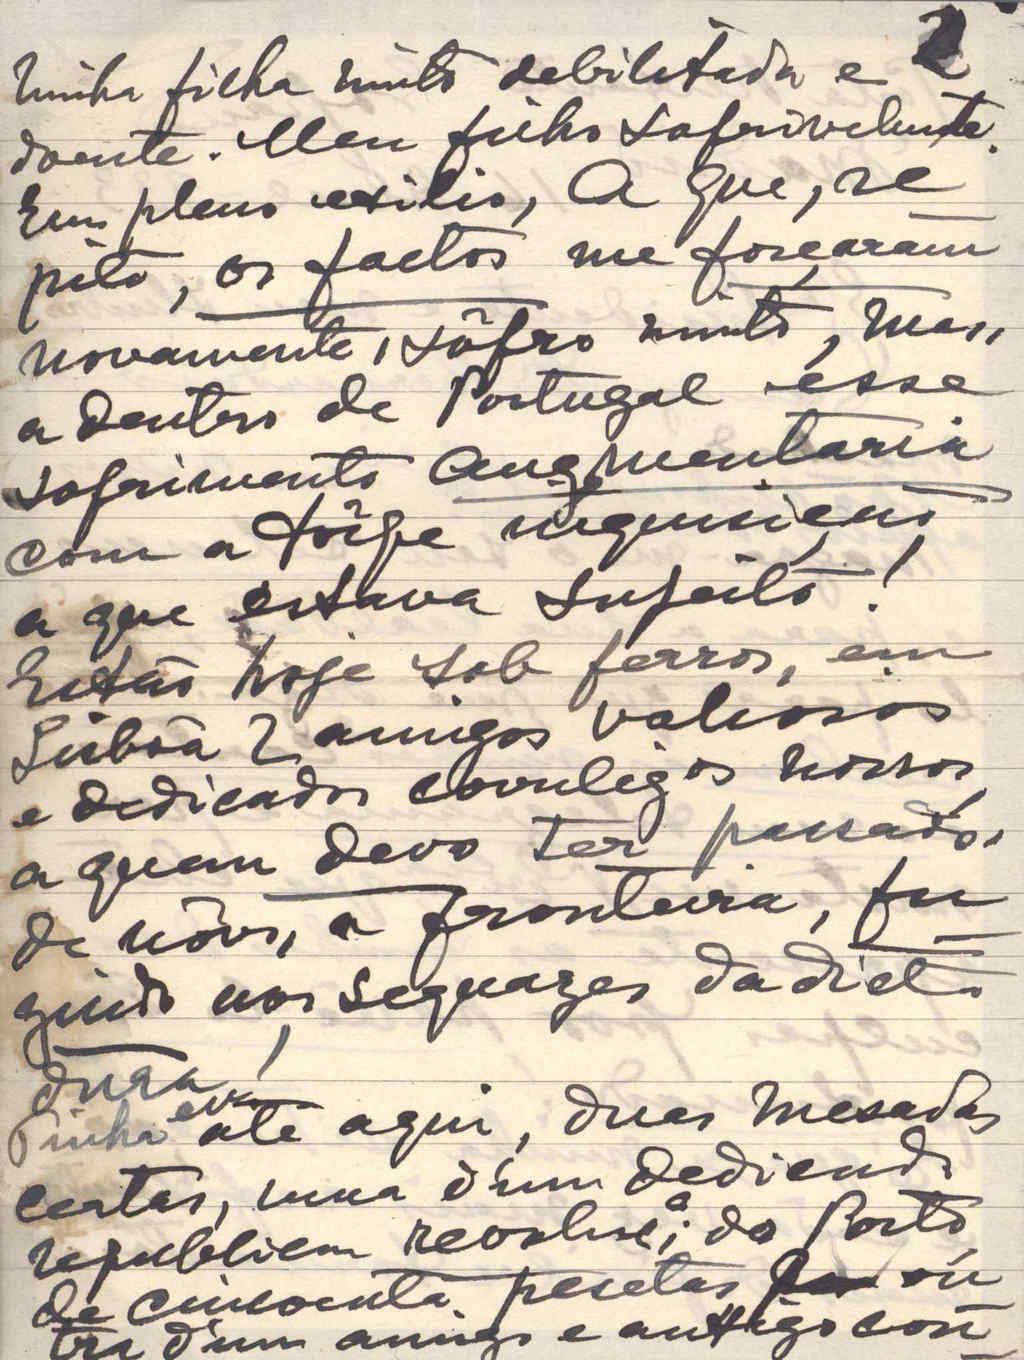 2
minha filha muito debilitada e
doente. Meu filho sofrivelmente.
Em pleno exilio, a que, re
pito, os factos me forçaram
novamente, sôfro muito, mas,
a dentro de Portugal esse
sofrimento augmentaria
com a tôrpe inquisição
a que estava sujeito!
Estão hoje sob ferros, em
Lisbôa 2 amigos valiosos
e dedicados correligos nossos,
a quem devo ter passado,
de nôvo, a fronteira, fu
gindo aos sequazes da dicta
dura!
Tinha eu até aqui, duas mesadas
certas, uma d'um dedicado
republicn revoluc.º; do Porto,
de cincoenta pesetas ou
tra d'um amigo e antigo con